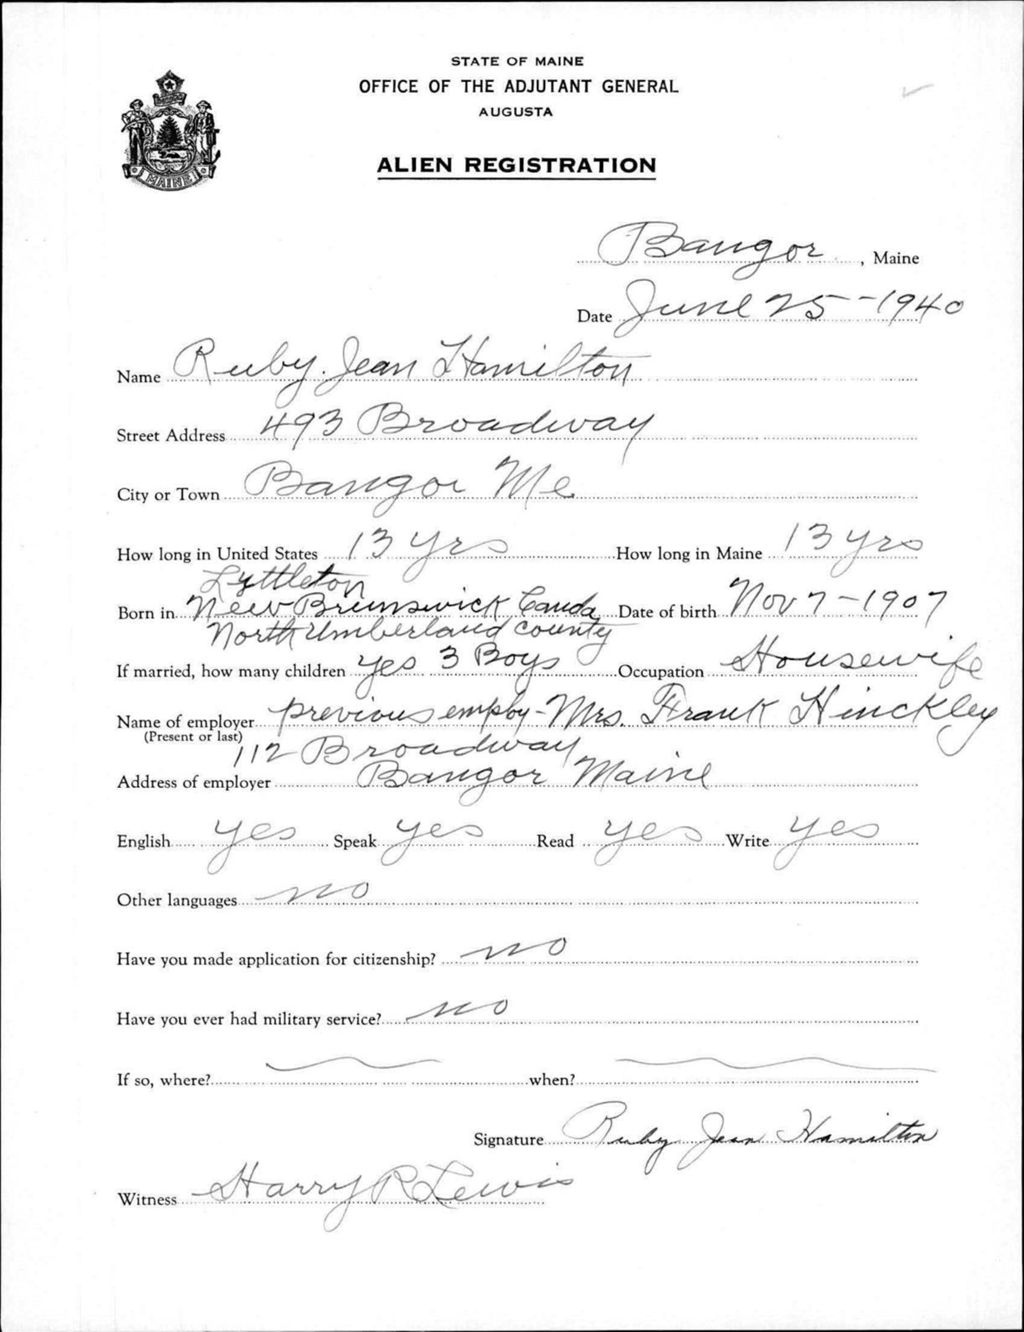 STATE OF MAINE
OFFICE OF THE ADJUTANT GENERAL
AUGUSTA
ALIEN REGISTRATION
MAINE
Bangor, Maine
Date June 25-1940
Name Ruby. Jean Hamilton
Street Address 493 Broadway
City or Town Bangor Me.
How long in United States 13 yrs How long in Maine 13 yrs
Lyttleton
Born in New Brunswick Canda Date of birth Nov 7-1907
North Umberland county
If married, how many children yes 3 Boys Occupation Housewife
Name of employer previous employ-Mrs. Frank Hinckley
(Present or last)
112 Broadway
Address of employer Bangor Maine
English yes Speak yes Read yes Write yes
Other languages no
Have you made application for citizenship? no
Have you ever had military service? no
If so, where? when?
Signature Ruby Jean Hamilton
Witness Harry R Lewis